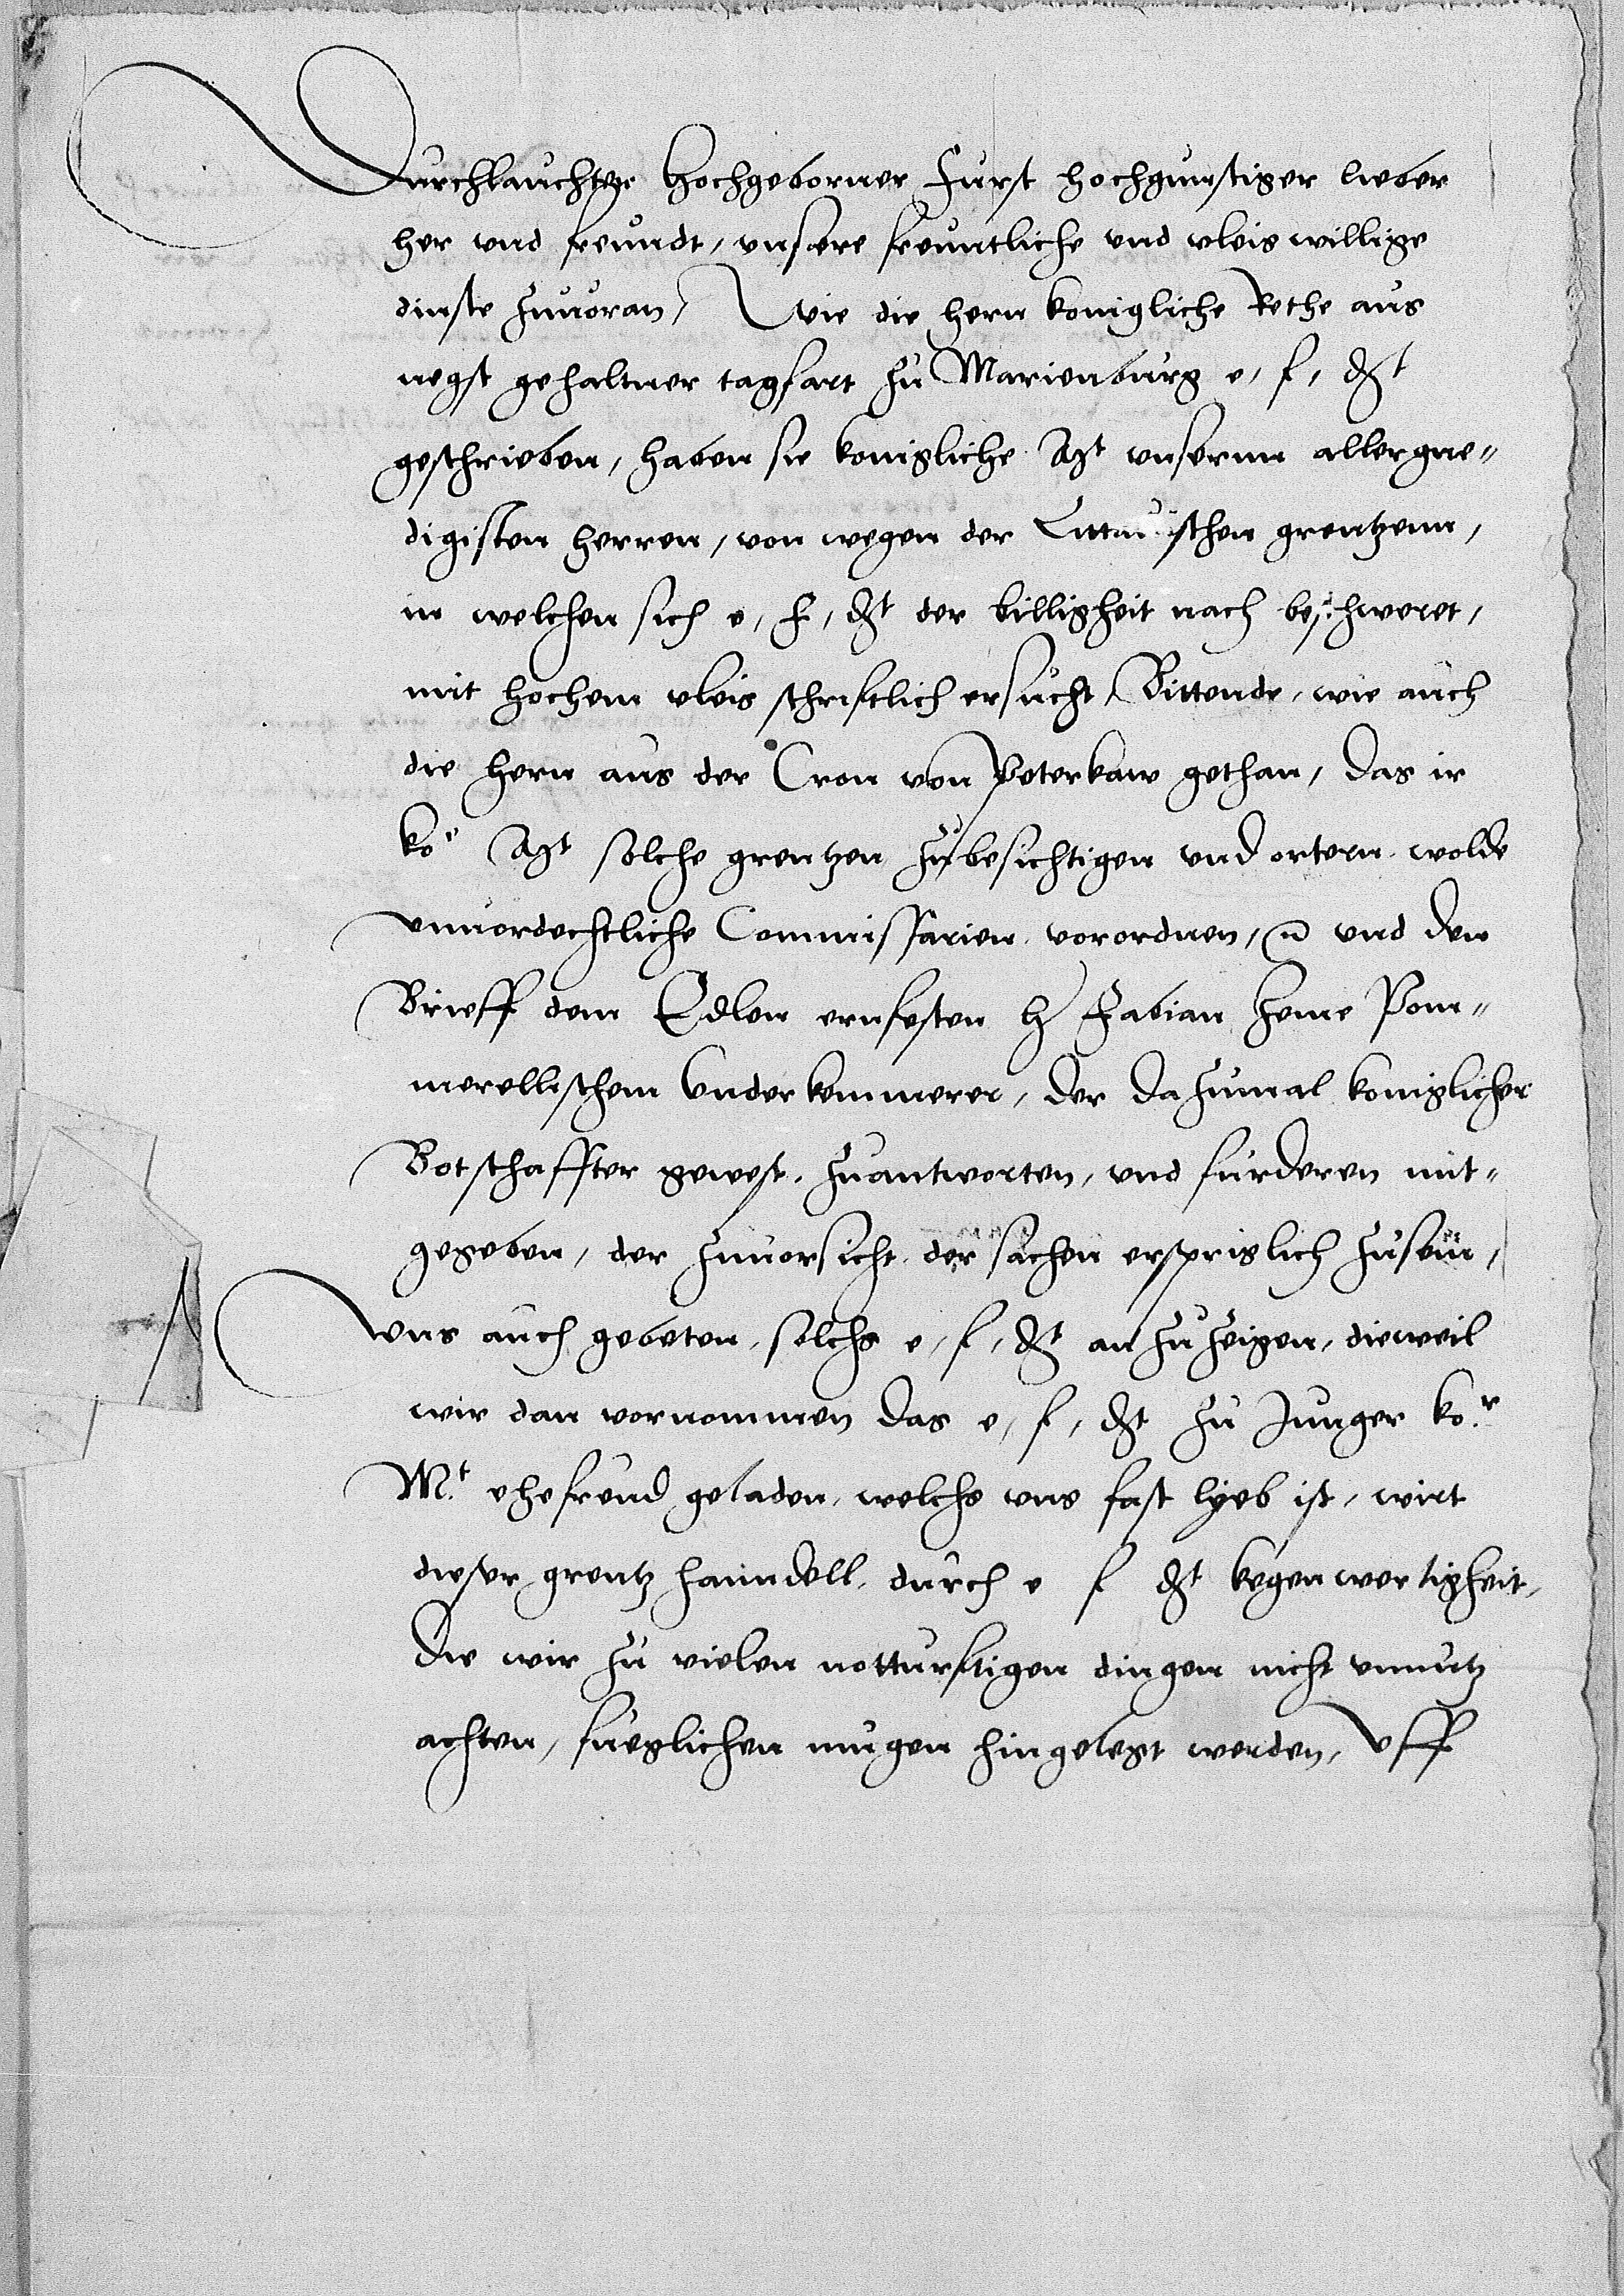 Durchlauchter Hochgeborner Furst hochgunstiger lieber
her vnd freundt, vnsere freuntliche vnd vleis willige
dinste zuuoran, Wie die hern konigliche Rethe aus
negst gehaltner tagfart zu Marienburg e, f, dt
geschrieben, haben sie konigliche Mt vnserm allergne-
digisten herren, von wegen der Littauischen grentzenn,
in welchen sich e, f, dt der billigheit nach beschweret,
mit hochem vleis schriftlich ersucht, Bittende, wie auch
die hern aus der Cron von Peterkaw gethan, das ir
ko. Mt solche grentzen zu besichtigen vnd ortern wolde
vnuordechtliche Commissarien vorordnen, vnd den
Brieff dem Edlen ernfesten h Fabian Zeme Pom-
merellischem Vnderkemmerer, der dazumal koniglicher
Botschaffter gewest, zuantworten, vnd furderen mit-
gegeben, der zuuorsicht der sachen ersprislich zusein,
vns auch gebeten, solchs e, f, dt an zu zeigen, dieweil
wir dan vornommen das e, f, dt zu Junger ko.r
M.t ehefreud geladen, welchs vns fast lyeb ist, wirt
dieser grentz hanndell, durch e f dt kegenwertigheit,
die wir zu vielen notturftigen dingen nicht vnnutz
achten, fueglichen mugen hingelegt werden, Vff